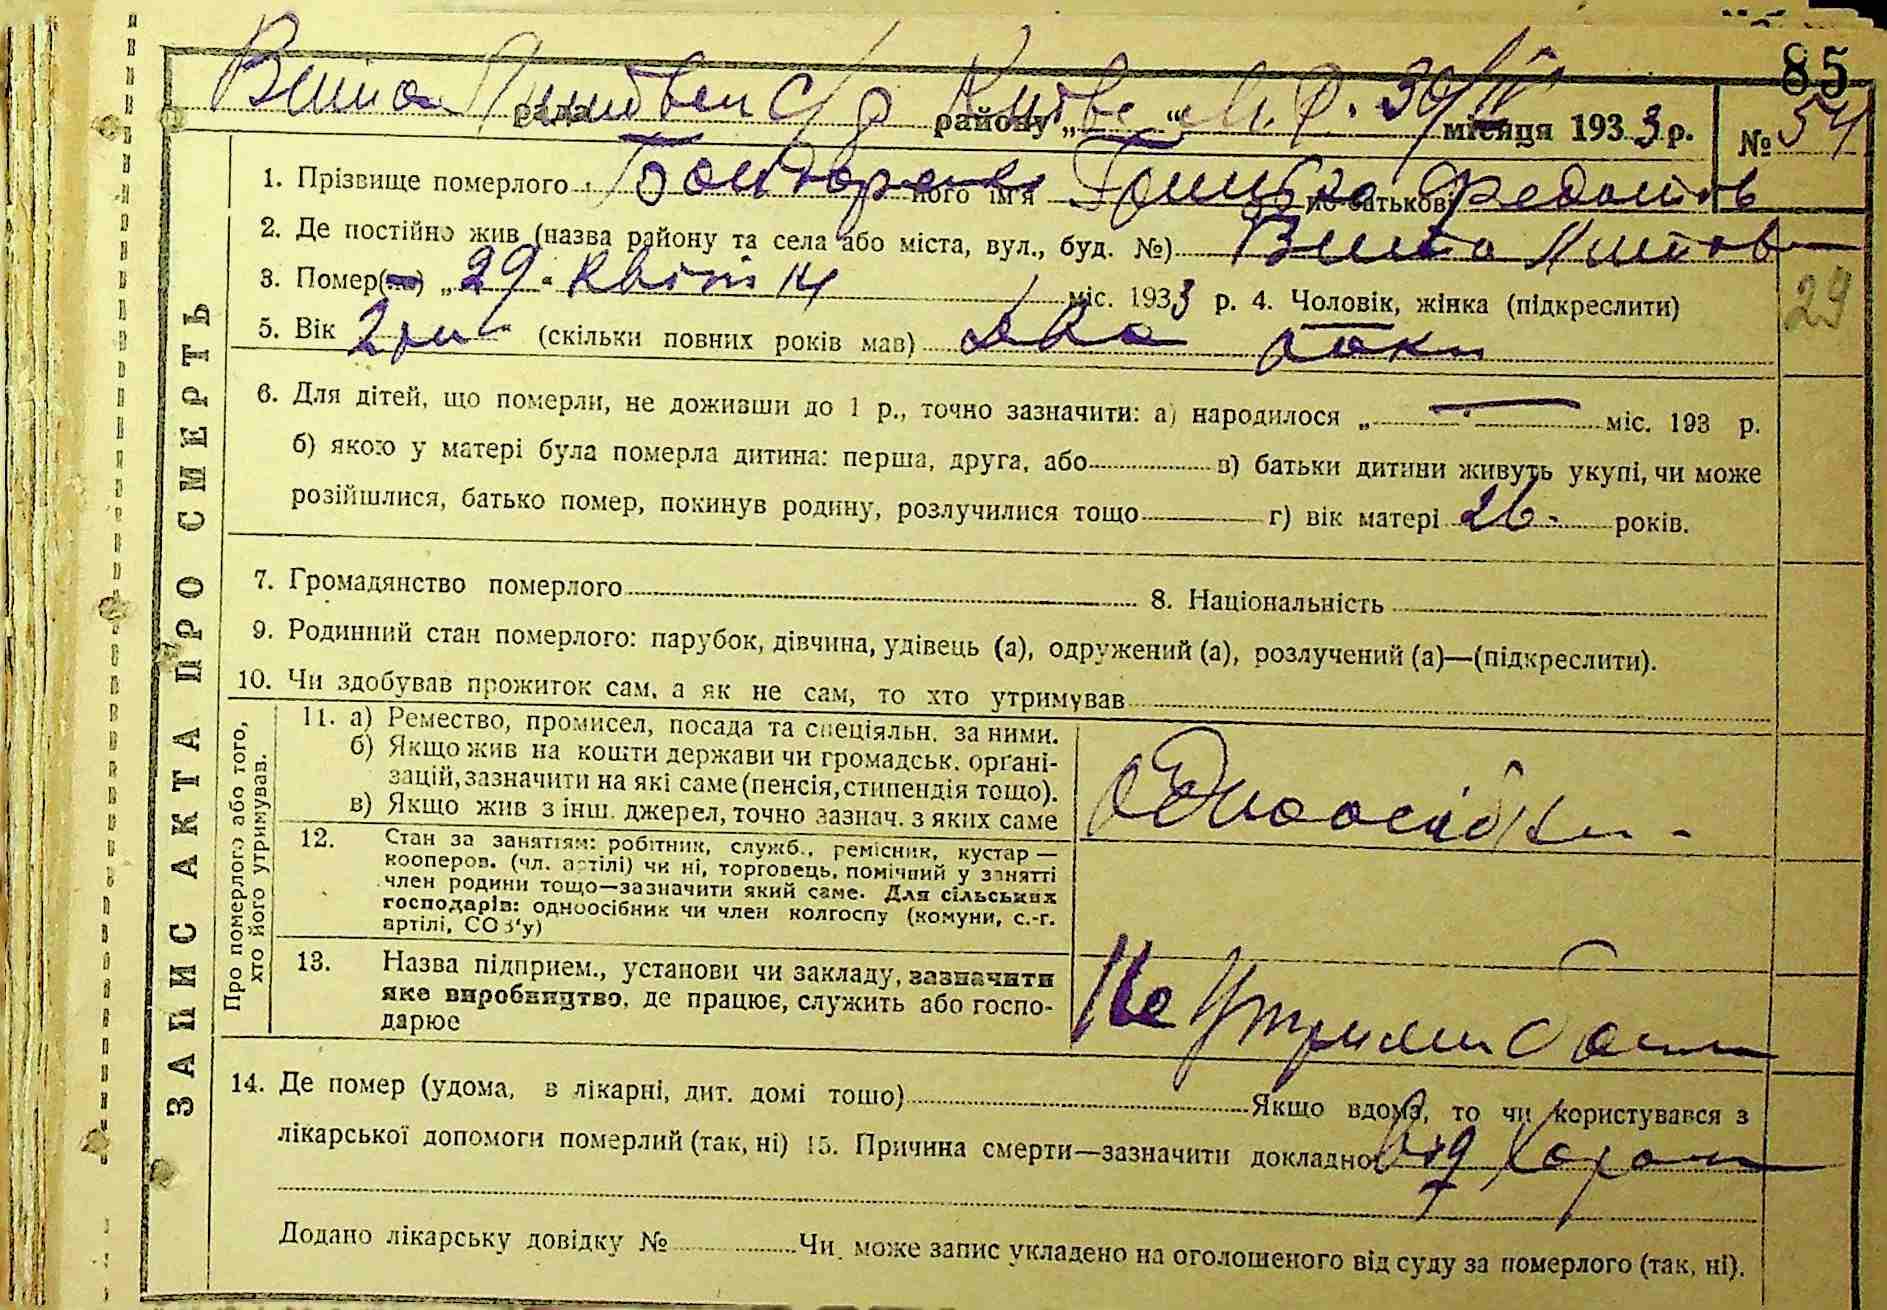 85
Вита Литовс с/р рада Київс району „ “ М. Р. 30/IV місяця 1933 р. № 54
1. Прізвище померлого Бондаренко його ім'я Грицько по батькові Федотов
2. Де постійно жив (назва району та села або міста, вул., буд. №) Вита Литов
3. Помер(ла) „ 29 квітн 14 міс. 1933 р. 4. Чоловік, жінка (підкреслити)
29
5. Вік 2 рик “ (скільки повних років мав) два роки
6. Для дітей, що померли, не доживши до 1 р., точно зазначити: а) народилося „ — міс. 193 р.
б) якою у матері була померла дитина: перша, друга, або в) батьки дитини живуть укупі, чи може
розійшлися, батько помер, покинув родину, розлучилися тощо г) вік матері 26 років.
7. Громадянство померлого 8. Національність
9. Родинний стан померлого: парубок, дівчина, удівець (а), одружений (а), розлучений (а)—(підкреслити).
10. Чи здобував прожиток сам, а як не сам, то хто утримував
11. а) Ремество, промисел, посада та спеціяльн. за ними.
б) Якщо жив на кошти держави чи громадськ. орґані-
зацій, зазначити на які саме (пенсія, стипендія тощо).
в) Якщо жив з інш. джерел, точно зазнач. з яких саме
Одноосібн -
12. Стан за заняттям: робітник, служб., ремісник, кустар —
кооперов. (чл. артілі) чи ні, торговець, помічний у занятті
член родини тощо—зазначити який саме. Для сільських
господарів: одноосібник чи член колгоспу (комуни, с.-г.
артілі, СОЗ'у)
13. Назва підприєм., установи чи закладу, зазначити
яке виробництво, де працює, служить або госпо-
дарює
На утриман бать
14. Де помер (удома, в лікарні, дит. домі тощо) Якщо вдома, то чи користувався з
лікарської допомоги померлий (так, ні) 15. Причина смерти—зазначити докладно від
Додано лікарську довідку № Чи може запис укладено на оголошеного від суду за померлого (так, ні).
ЗАПИС АКТА ПРО СМЕРТЬ
Про померлого або того,
хто його утримував.